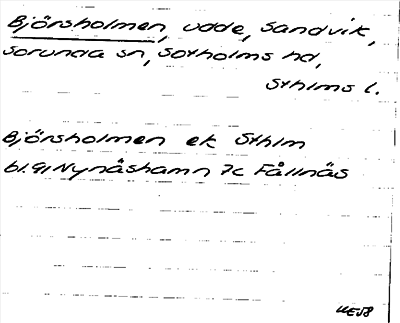 Björsholmen, udde, Sandvik,
Sorunda sn, Sotholms hd,
Sthlms l.
Björsholmen ek Sthlm
bl. 91 Nynäshamn 7c Fållnäs